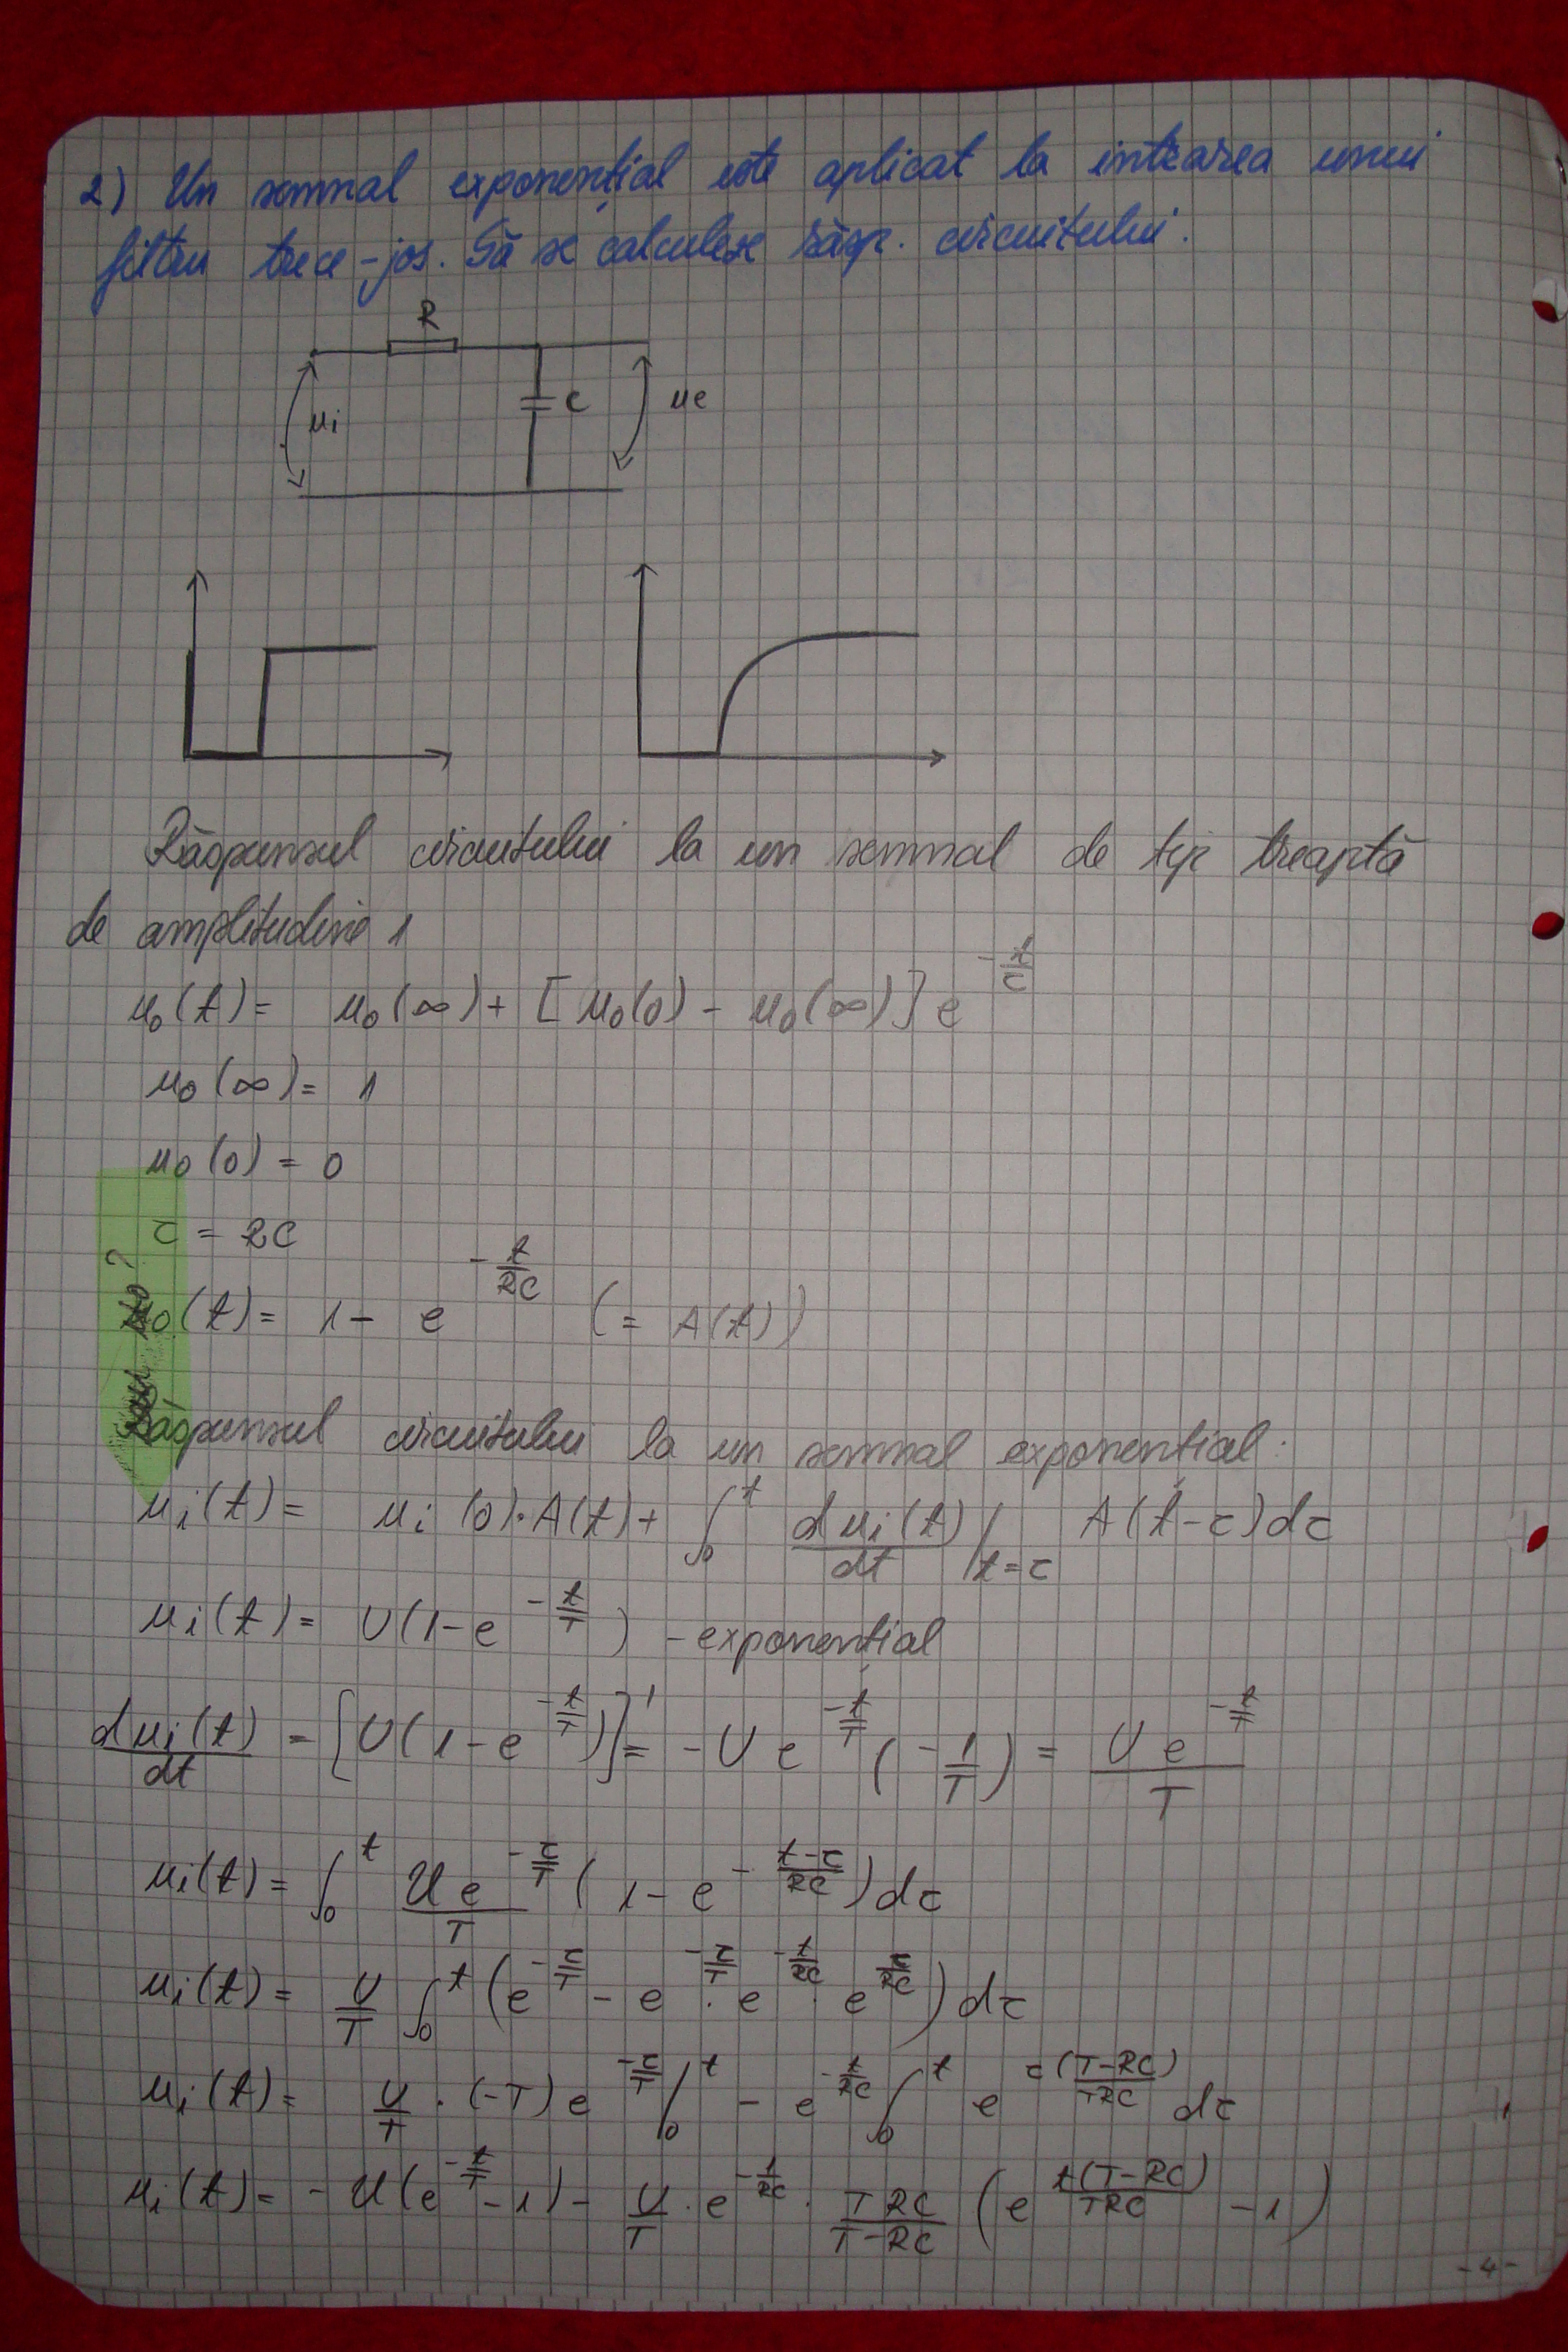 2) Un semnal exponențial este aplicat la intrarea unui
filtru trece-jos. Să se calculeze răsp. circuitului.
R
ui
C
ue
Răspunsul circuitului la un semnal de tip treaptă
de amplitudine 1
u0(t) = u0(∞) + [u0(0) - u0(∞)] e^(-t/τ)
u0(∞) = 1
u0(0) = 0
τ = RC
u0(t) = 1 - e^(-t/RC) (= A(t))
Răspunsul circuitului la un semnal exponențial:
ui(t) = ui(0)·A(t) + ∫₀ᵗ dui(t)/dt |t=τ A(t-τ)dτ
ui(t) = U(1-e^(-t/T)) - exponențial
dui(t)/dt = [U(1-e^(-t/T))]' = -U e^(-t/T) (-1/T) = U e^(-t/T)/T
ui(t) = ∫₀ᵗ U e^(-τ/T)/T (1 - e^(-(t-τ)/RC)) dτ
ui(t) = U/T ∫₀ᵗ (e^(-τ/T) - e^(-τ/T) · e^(-t/RC) · e^(τ/RC)) dτ
ui(t) = U/T · (-T) e^(-τ/T) |₀ᵗ - e^(-t/RC) ∫₀ᵗ e^(τ(T-RC)/TRC) dτ
ui(t) = - U(e^(-t/T) - 1) - U/T · e^(-1/RC) · TRC/(T-RC) (e^(t(T-RC)/TRC) - 1)
-4-